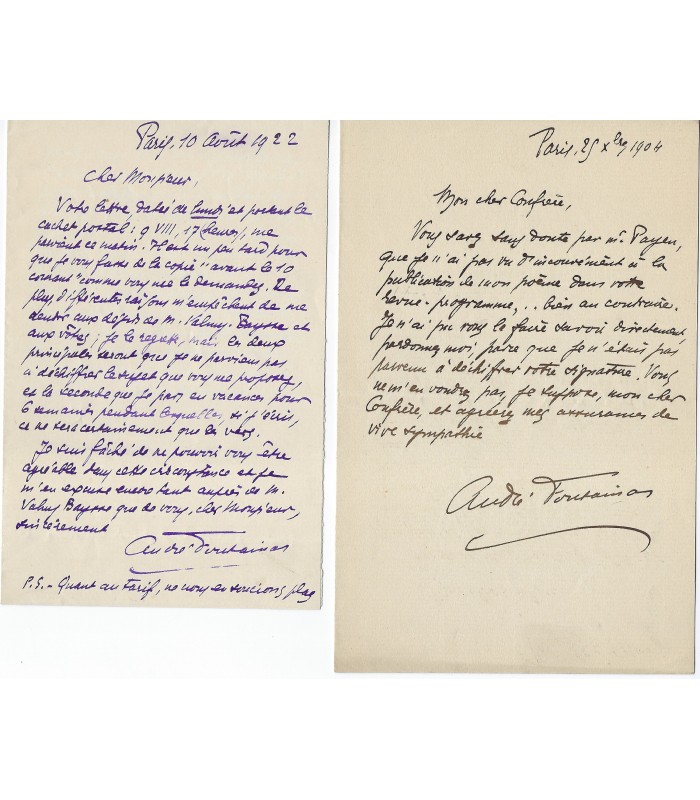 Paris, 10 Août 1922
Cher Monsieur,
Votre lettre datée de lundi et portant le
cachet postal : 9 VIII, 17 heures, me
parvient ce matin. Il est un peu tard pour
que je vous fasse de la copie "avant le 10
courant" comme vous me le demandez. De
plus différentes raisons m'empêchent de me
rendre aux désirs de M. Valmy-Baysse et
aux vôtres ; je le regrette, mais les deux
principales seront que je ne parviens pas
à déchiffrer le sujet que vous me proposez,
et la seconde que je pars en vacances pour
6 semaines pendant lesquelles, si j'écris,
ce ne sera certainement que des vers.
Je suis fâché de ne pouvoir vous être
agréable dans cette circonstance et je
m'en excuse encore tant auprès de M.
Valmy Baysse que de vous, cher Monsieur,
sincèrement
André Fontainas
P.S. - Quant au tarif, ne nous en soucions plus
Paris, 25 Xbre 1904
Mon cher Confrère,
Vous savez sans doute par M. Payen,
que je n'ai pas vu d'inconvénient à la
publication de mon poème dans votre
revue-programme, .. bien au contraire.
Je n'ai pu vous le faire savoir directement,
pardonnez moi, parce que je n'étais pas
parvenu à déchiffrer votre signature. Vous
ne m'en voudrez pas, je suppose, mon cher
Confrère, et agréerez mes assurances de
vive sympathie
André Fontainas